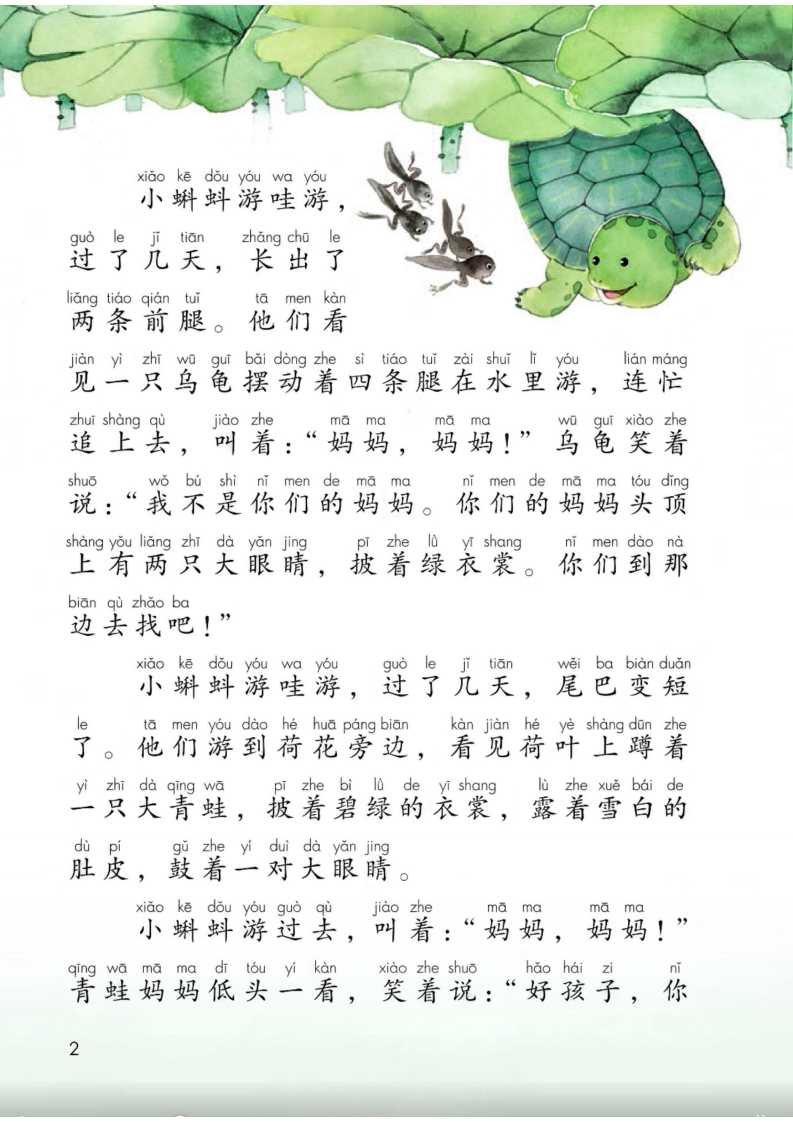 xiǎo kē dǒu yóu wa yóu
小蝌蚪游哇游，
guò le jǐ tiān zhǎng chū le
过了几天，长出了
liǎng tiáo qián tuǐ tā men kàn
两条前腿。他们看
jiàn yì zhī wū guī bǎi dòng zhe sì tiáo tuǐ zài shuǐ lǐ yóu lián máng
见一只乌龟摆动着四条腿在水里游，连忙
zhuī shàng qù jiào zhe mā ma mā ma wū guī xiào zhe
追上去，叫着：“妈妈，妈妈！”乌龟笑着
shuō wǒ bú shì nǐ men de mā ma nǐ men de mā ma tóu dǐng
说：“我不是你们的妈妈。你们的妈妈头顶
shàng yǒu liǎng zhī dà yǎn jing pī zhe lǜ yī shang nǐ men dào nà
上有两只大眼睛，披着绿衣裳。你们到那
biān qù zhǎo ba
边去找吧！”
xiǎo kē dǒu yóu wa yóu guò le jǐ tiān wěi ba biàn duǎn
小蝌蚪游哇游，过了几天，尾巴变短
le tā men yóu dào hé huā páng biān kàn jiàn hé yè shàng dūn zhe
了。他们游到荷花旁边，看见荷叶上蹲着
yì zhī dà qīng wā pī zhe bì lǜ de yī shang lù zhe xuě bái de
一只大青蛙，披着碧绿的衣裳，露着雪白的
dù pí gǔ zhe yí duì dà yǎn jing
肚皮，鼓着一对大眼睛。
xiǎo kē dǒu yóu guò qù jiào zhe mā ma mā ma
小蝌蚪游过去，叫着：“妈妈，妈妈！”
qīng wā mā ma dī tóu yí kàn xiào zhe shuō hǎo hái zi nǐ
青蛙妈妈低头一看，笑着说：“好孩子，你
2